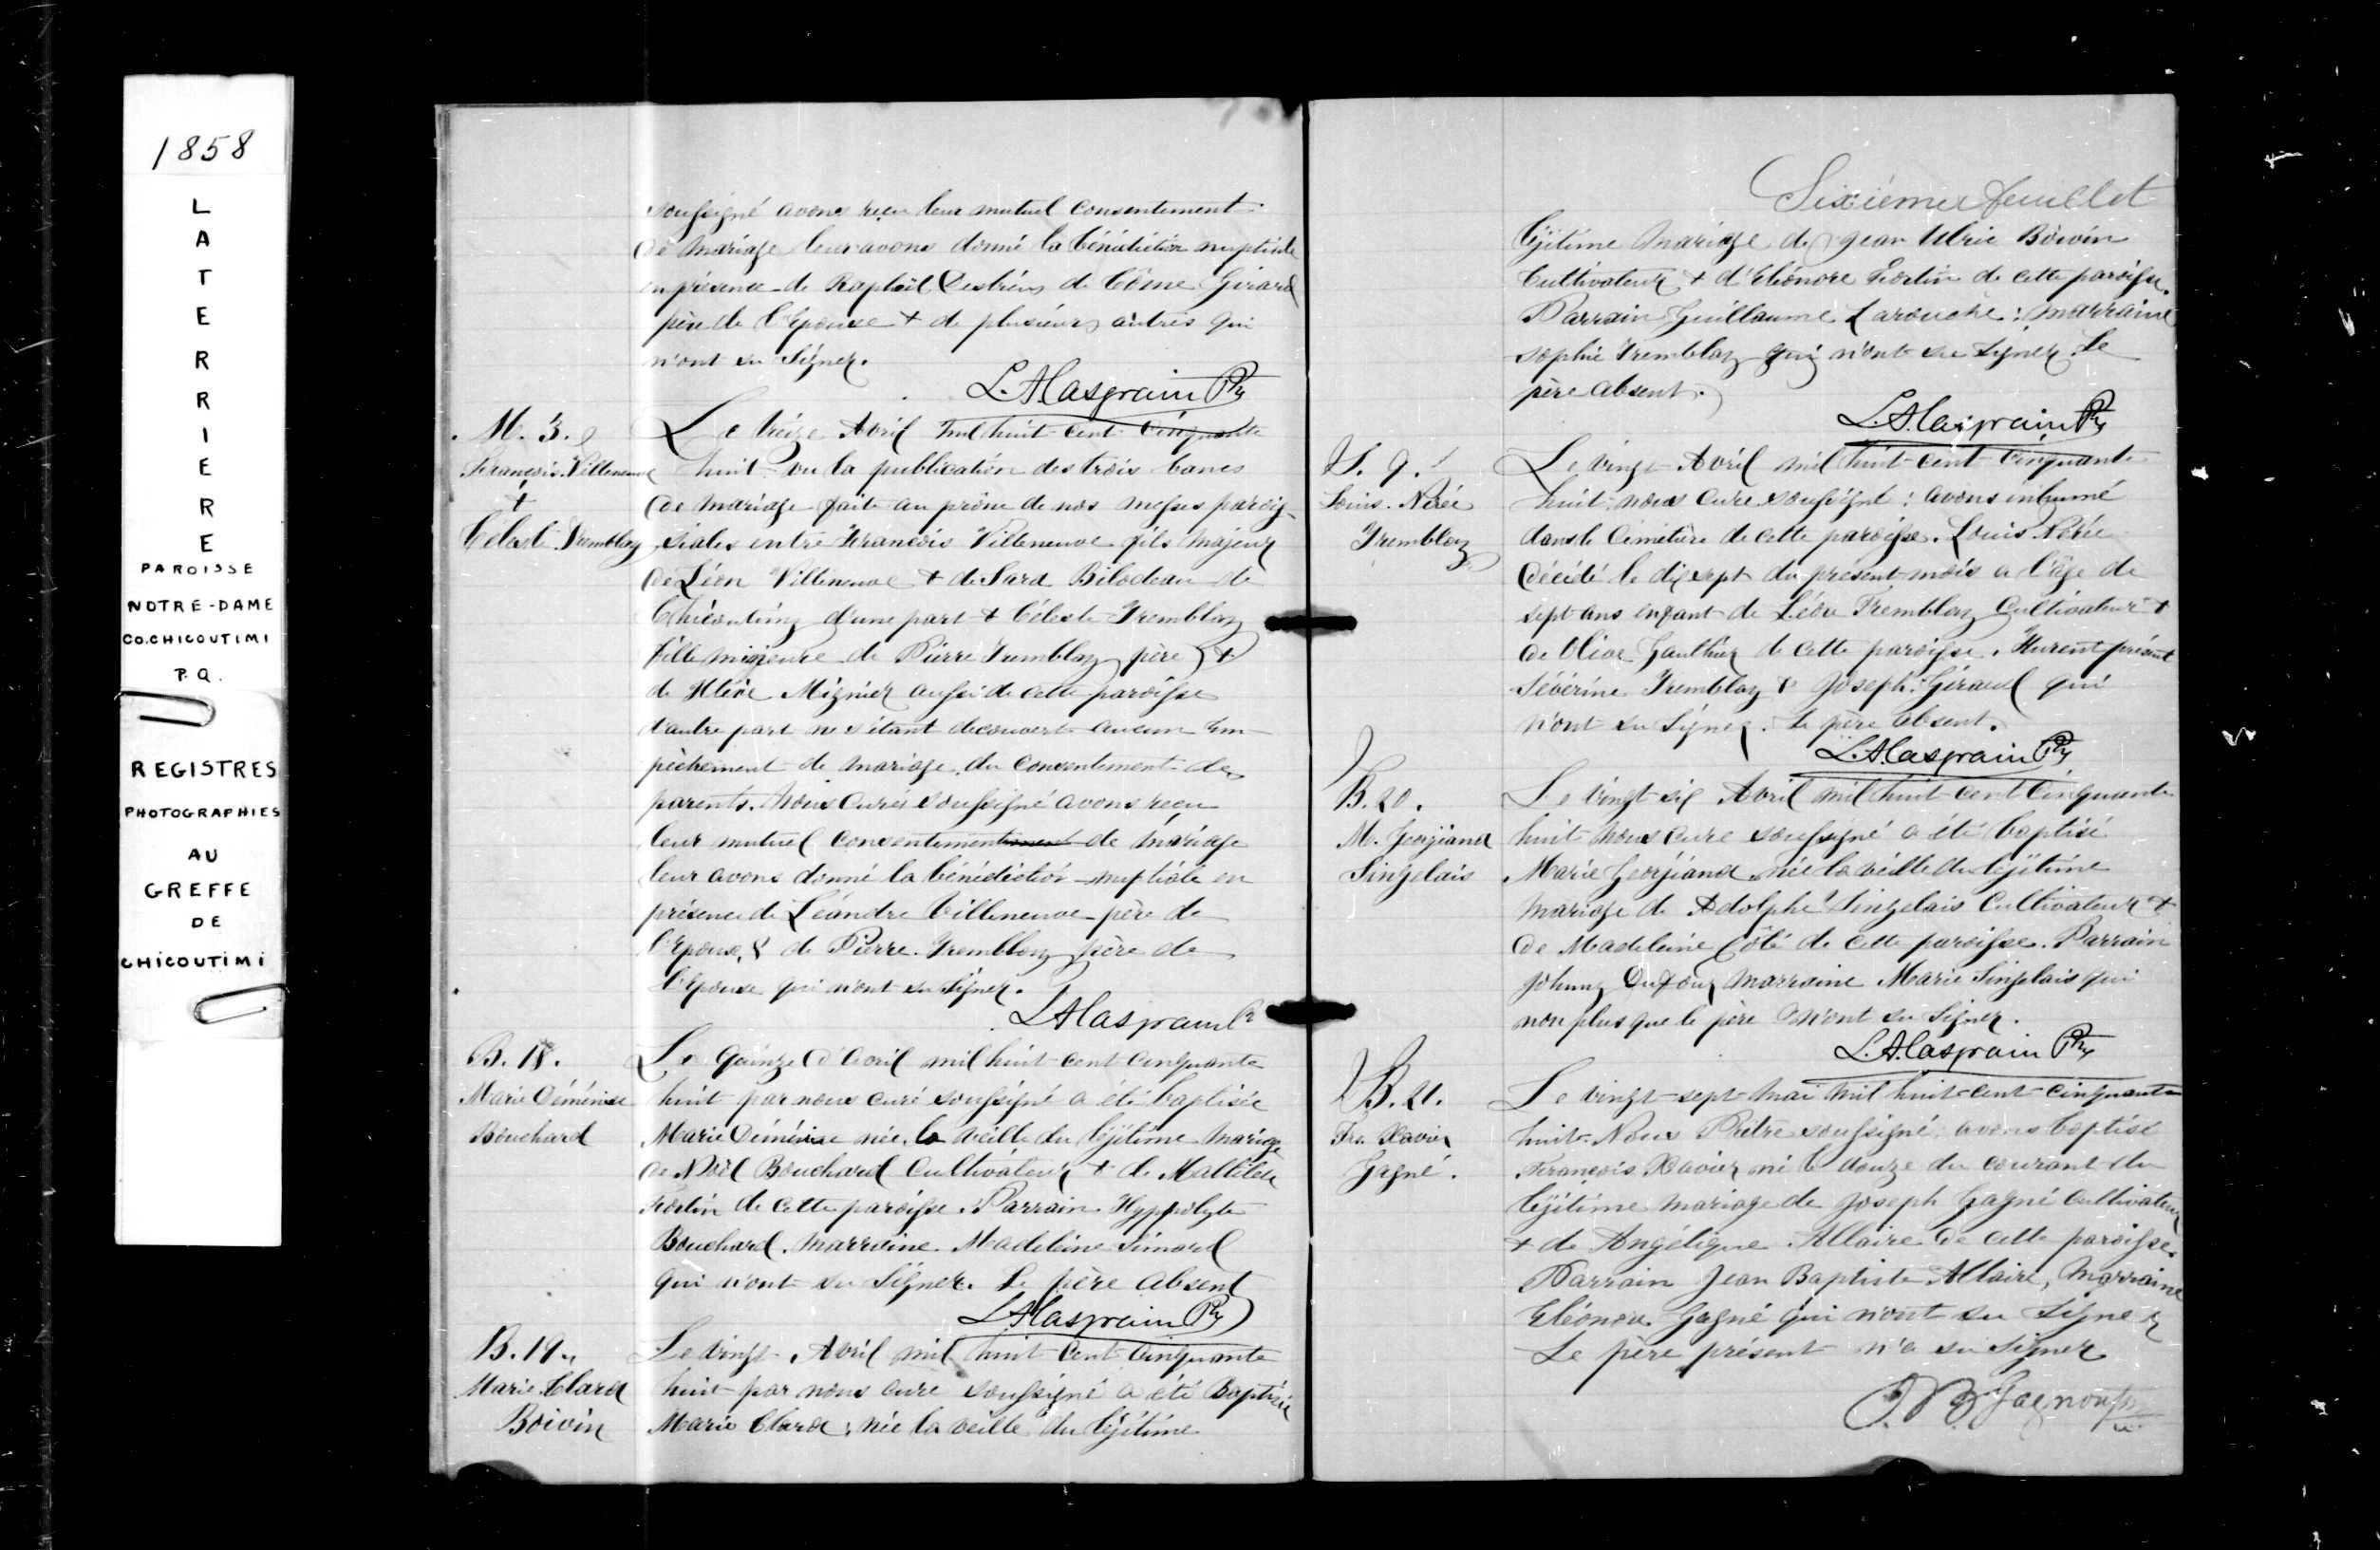 1858
LATERRIERE
PAROISSE
NOTRE-DAME
CO. CHICOUTIMI
P.Q.
REGISTRES
PHOTOGRAPHIES
AU
GREFFE
DE
CHICOUTIMI
soussigné avons reçu leur mutuel consentement
de mariage leur avons donné la bénédiction nuptiale
en présence de Raphaël de Côme Girard
père de l'Epouse & de plusieurs autres qui
n'ont su signer.
L. A. Casgrain Ptre
M. 3.
François Villeneuve
&
Céleste Tremblay
Le treize Avril mil huit cent cinquante
huit vu la publication des trois bancs
de mariage faite au prône de nos messes parois-
siales entre Francois Villeneuve fils majeur
de Léon Villeneuve & de Sara Bilodeau de
Chicoutimy d'une part & Céleste Tremblay
fille mineure de Pierre Tremblay père &
de Mignier aussi de cette paroisse
d'autre part ne s'étant decouvert aucun em-
pêchement de mariage du consentement des
parents. Nous curés soussigné avons reçu
leur mutuel consentement de mariage
leur avons donné la bénédiction nuptiale en
présence de Léandre Villeneuve père de
l'Epouse, & de Pierre Tremblay père de
l'Epouse qui n'ont su signer.
L A Casgrain Ptr
B. 18.
Marie Déménise
Bouchard
Le quinze d'avril mil huit cent cinquante
huit par nous curé soussigné a été baptisée
Marie Déménise née la veille du légitime mariage
de Noël Bouchard Cultivateur & de Mathilde
Fortin de cette paroisse. Parrain Hyppolyte
Bouchard. marraine Madeleine Simard
qui n'ont su signer. Le père absent
L A Casgrain Ptr
B. 19.
Marie Clara
Boivin
Le vingt Avril mil huit cent cinquante
huit par nous cure soussigné a été Baptisée
Marie Clara, née la veille du légitime
Sixième feuillet
légitime mariage de Jean Ulric Boivin
Cultivateur & d'Eléonore Fortin de cette paroisse.
Parrain Guillaume Larouche: marraine
sophie Tremblay qui n'ont su signer. Le
père absent.
L. A. Casgrain Ptr
S. 9.
Louis Nérée
Tremblay
Le vingt Avril mil huit cent cinquante
huit nous cure soussigné: avons inhumé
dans le cimetière de cette paroisse. Louis Nérée
décédé le dix sept du présent mois a l'âge de
sept ans enfant de Léon Tremblay Cultivateur &
de Olive Gaulthier de cette paroisse. Furent présent
Sévérine Tremblay & Joseph Girard qui
n'ont su signer. Le père absent.
L. A. Casgrain Ptr
B. 20.
M. Georgiana
Singelais
Le vingt six Avril mil huit cent cinquante
huit nous cure soussigné a été baptisé
Marie Georgiana née la veille du légitime
mariage de Adolphe Singelais Cultivateur &
de Madeleine Côté de cette paroisse. Parrain
Johnny Dufour marraine Marie Singelais qui
non plus que le père n'ont su signer.
L. A. Casgrain Ptr
B. 21.
Frs. Xavier
Gagné.
Le vingt-sept mai mil huit cent cinquante
huit. Nous Prêtre soussigné avons baptisé
François Xavier né le douze du courant du
légitime mariage de Joseph Gagné cultivateur
& de Angélique Allaire de cette paroisse.
Parrain Jean Baptiste Allaire, Marraine
Eléonore Gagné qui n'ont su signer
Le père présent n'a su signer
J. B. Gagnon Ptre